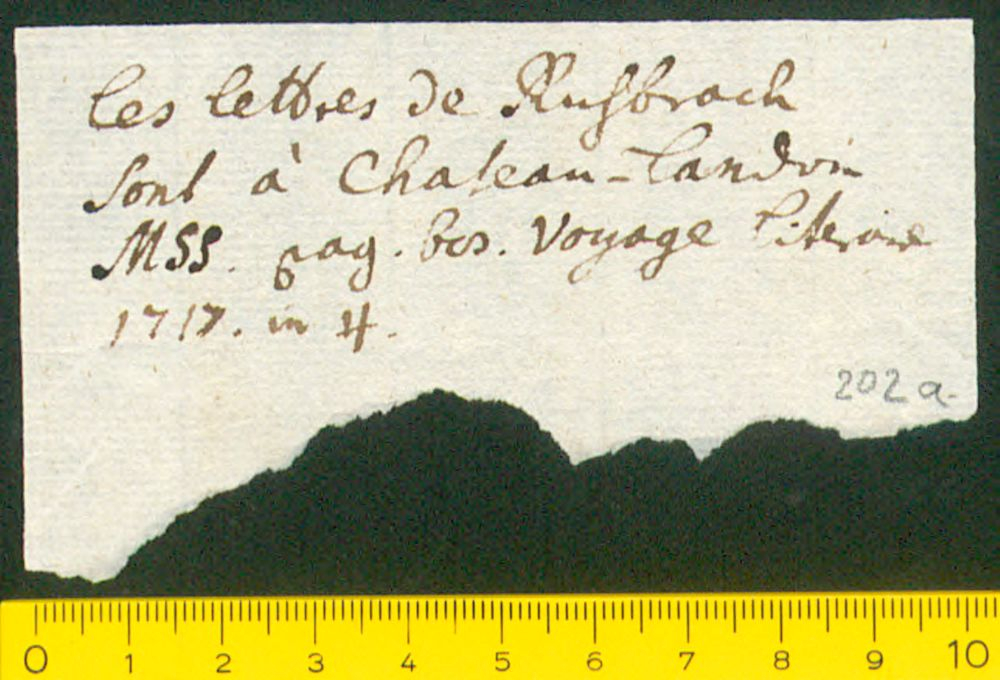 les lettres de Rusbroch
sont à Chateau-Landon
MSS. pag. Voyage Literaire
1717. in 4.
202 a.
0 1 2 3 4 5 6 7 8 9 10